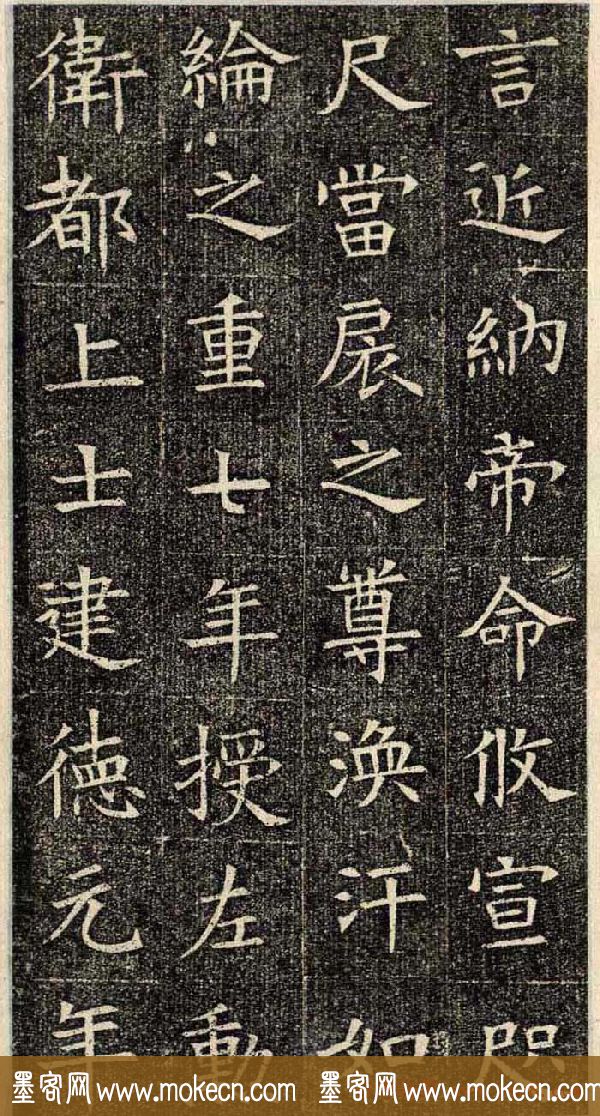 言近納帝命攸宣咫
尺當扆之尊渙汗如
綸之重七年授左勳
衛都上士建德元年
墨客网 www.mokecn.com 墨客网 www.mokecn.com